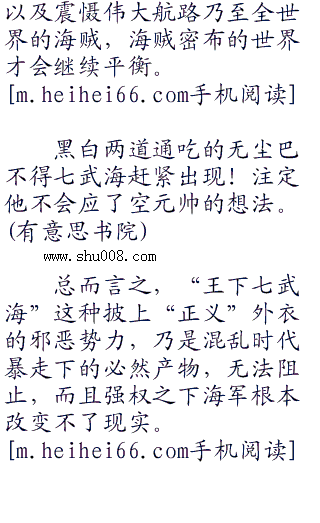 以及震慑伟大航路乃至全世
界的海贼，海贼密布的世界
才会继续平衡。
[m.heihei66.com手机阅读]
黑白两道通吃的无尘巴
不得七武海赶紧出现！注定
他不会应了空元帅的想法。
(有意思书院)
www.shu008.com
总而言之，“王下七武
海”这种披上“正义”外衣
的邪恶势力，乃是混乱时代
暴走下的必然产物，无法阻
止，而且强权之下海军根本
改变不了现实。
[m.heihei66.com手机阅读]